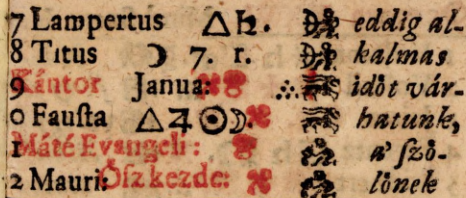 7 Lampertus △♄. eddig al-
8 Titus ☽ 7. r. kalmas
9 Kántor Janua: idöt vár-
0 Fauſta △♃☉☽ hatunk,
1 Máté Evangeli: a' ſzö-
2 Mauri: Öſz kezde: lönek